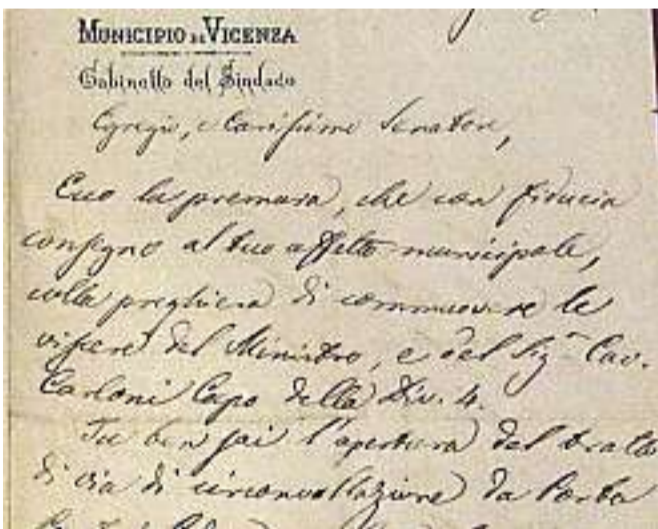 MUNICIPIO DI VICENZA
Gabinetto del Sindaco
Egregio, e Carissimo Senatore,
Ecco la premura, che con fiducia
consegno al tuo affetto municipale,
colla preghiera di commuovere le
viscere del Ministro, e del Sigr Cav.
Carloni Capo della Div. 4.
Tu ben sai l'apertura del tratto
di via di circonvallazione da Porta